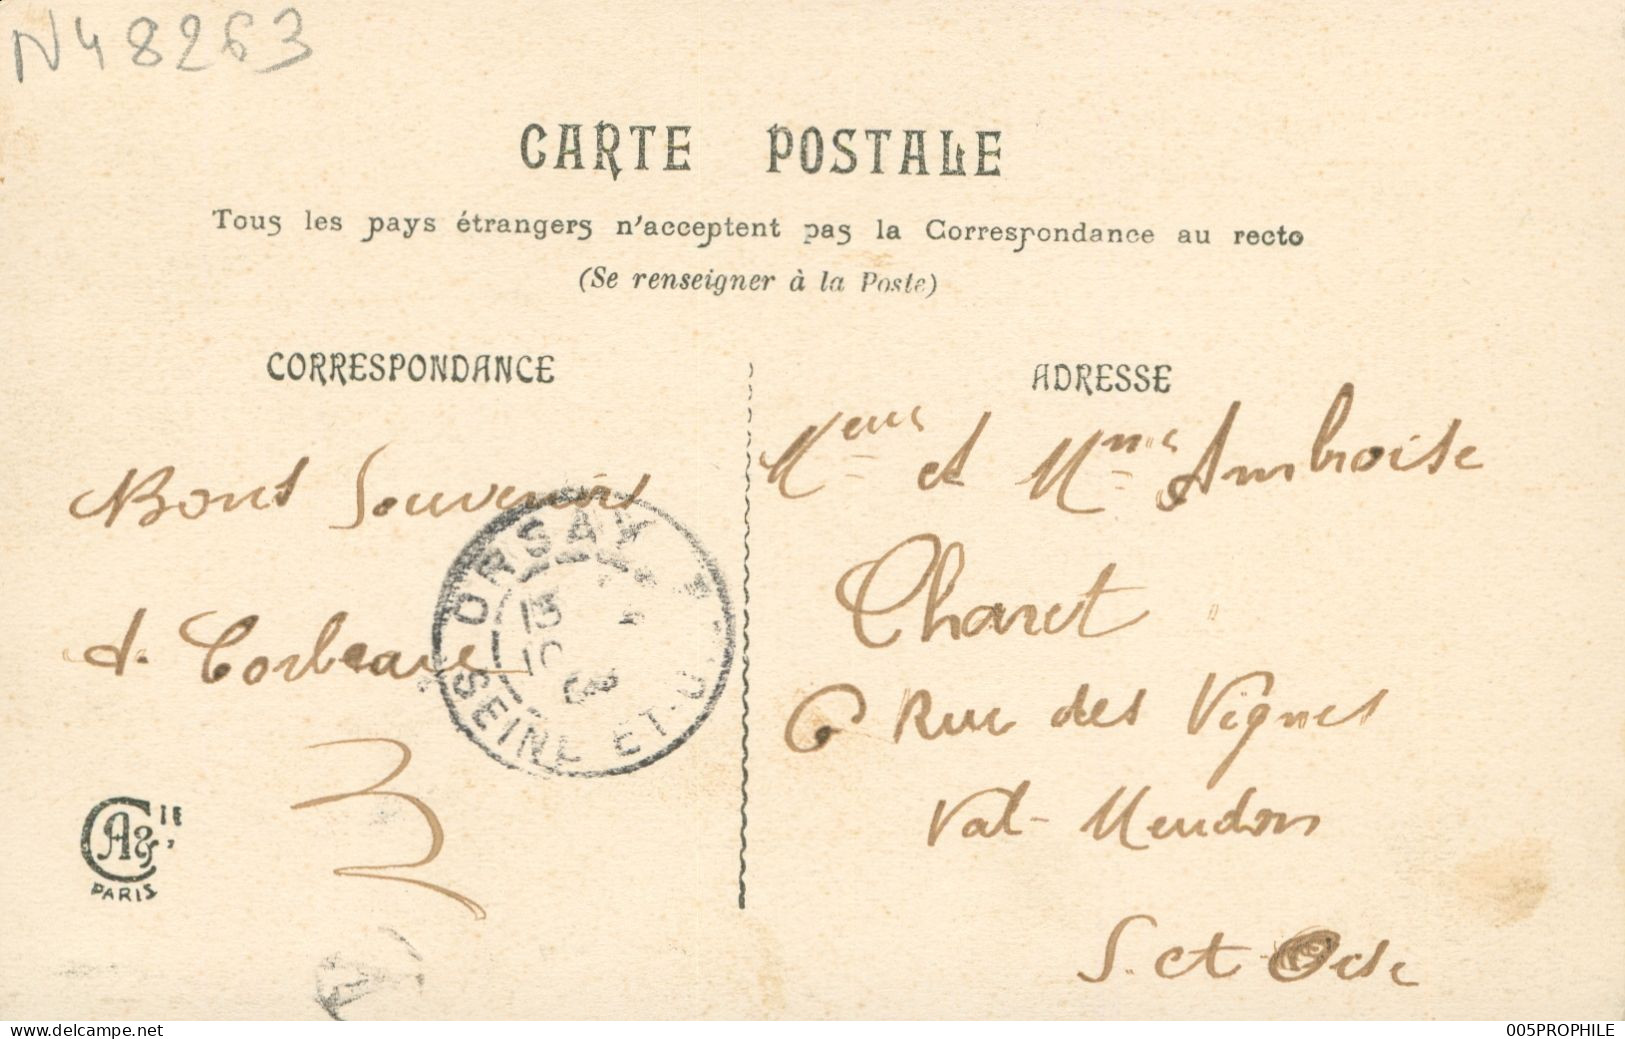 N48263
CARTE POSTALE
Tous les pays étrangers n'acceptent pas la Correspondance au recto
(Se renseigner à la Poste)
CORRESPONDANCE
Bons Souvenirs
de Corbeau
ORSAY
13
SEINE-ET-O.
A & Cie
PARIS
ADRESSE
Meur et Mme Ambroise
Charet
6 Rue des Vignes
Val-Meudon
S. et Oise
delcampe.net
005PROPHILE